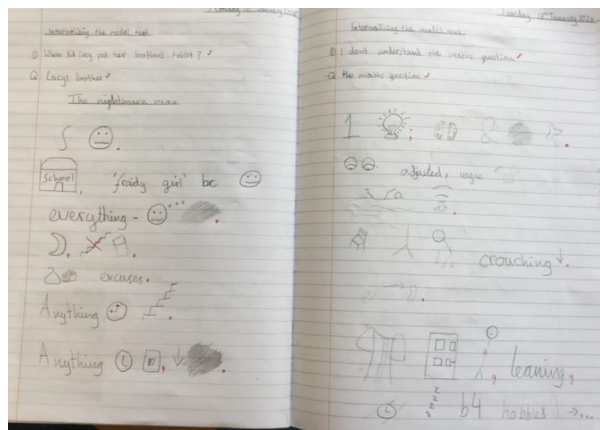 Internalising the model text
Q Where did Lucy put her brothers tablet?
Q Lucy's brother
The nightmare man
School, 'fraidy girl' bc
everything -
excuses.
Anything
Anything
Internalising the model text
Q I don't understand the maths question
Q the maths question
1 ; 8
adjusted, vague
crouching
, leaning,
zzz b4 hobbled ...